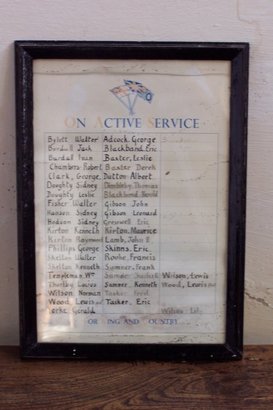 ON ACTIVE SERVICE
Bylett Walter Adcock, George
Burdall Jack Blackband, Eric
Burdall Ivan Baxter, Leslie
Chambers Robert Baxter Derek
Clark, George Dutton Albert
Doughty Sidney Dembleby Thomas
Doughty Leslie Blackband Harold
Fisher Walter Gibson John
Hansen Sidney Gibson Leonard
Hodson Sidney Greswell Eric
Kirton Kenneth Kirton, Maurice
Kirton Raymond Lamb, John
Phillips George Skinns, Eric
Skelton Walter Roche, Francis
Skelton Kenneth Sumner, Frank
Templeman Wm Sumner Wilson, Lewis
Thorley Sumner, Kenneth Wood, Lewis
Wilson Norman Tasker
Wood, Lewis Tasker, Eric
Yorke Gerald Wilson
FOR KING AND COUNTRY